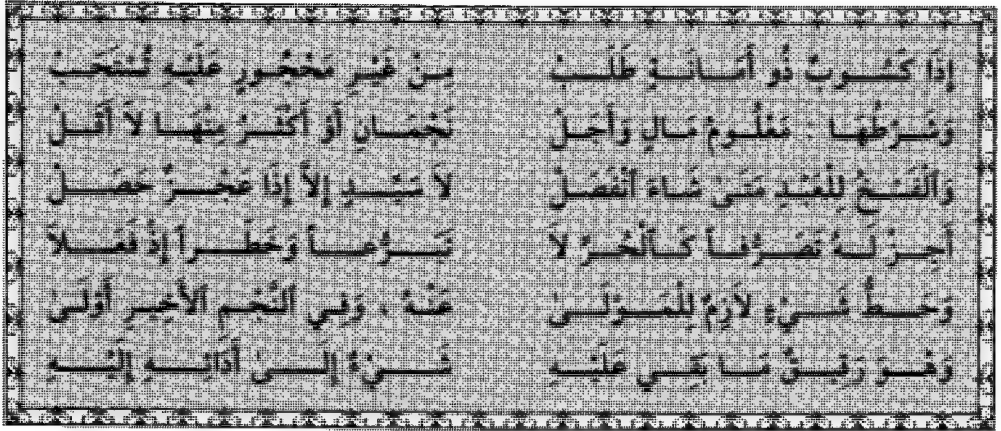 إِذَا كَسُوبٌ ذُو أَمَانَةٍ طَلَبْ مِنْ غَيْرِ مَحْجُورٍ عَلَيْهِ تُسْتَحَبْ
وَشَرْطُهَا . مَعْلُومُ مَالٍ وَأَجَلْ نَجْمَانِ أَوْ أَكْثَرُ مِنْهَا لاَ أَقَلْ
وَٱلْفَسْخُ لِلْعَبْدِ مَتَىٰ شَاءَ ٱنْفَصَلْ لاَ سَيِّدٍ إِلاَّ إِذَا عَجْزٌ حَصَلْ
أَجِزْ لَهُ تَصَرُّفاً كَٱلْحُرِّ لاَ تَبَرُّعاً وَخَطَراً إِذْ فَعَلاَ
وَحَطُّ شَيْءٍ لاَزِمٌ لِلْمَوْلَىٰ عَنْهُ ، وَفِي ٱلنَّجْمِ ٱلأَخِيرِ أَوْلَىٰ
وَهْوَ رَقِيقٌ مَا بَقِي عَلَيْهِ شَيْءٌ إِلَىٰ أَدَائِهِ إِلَيْهِ